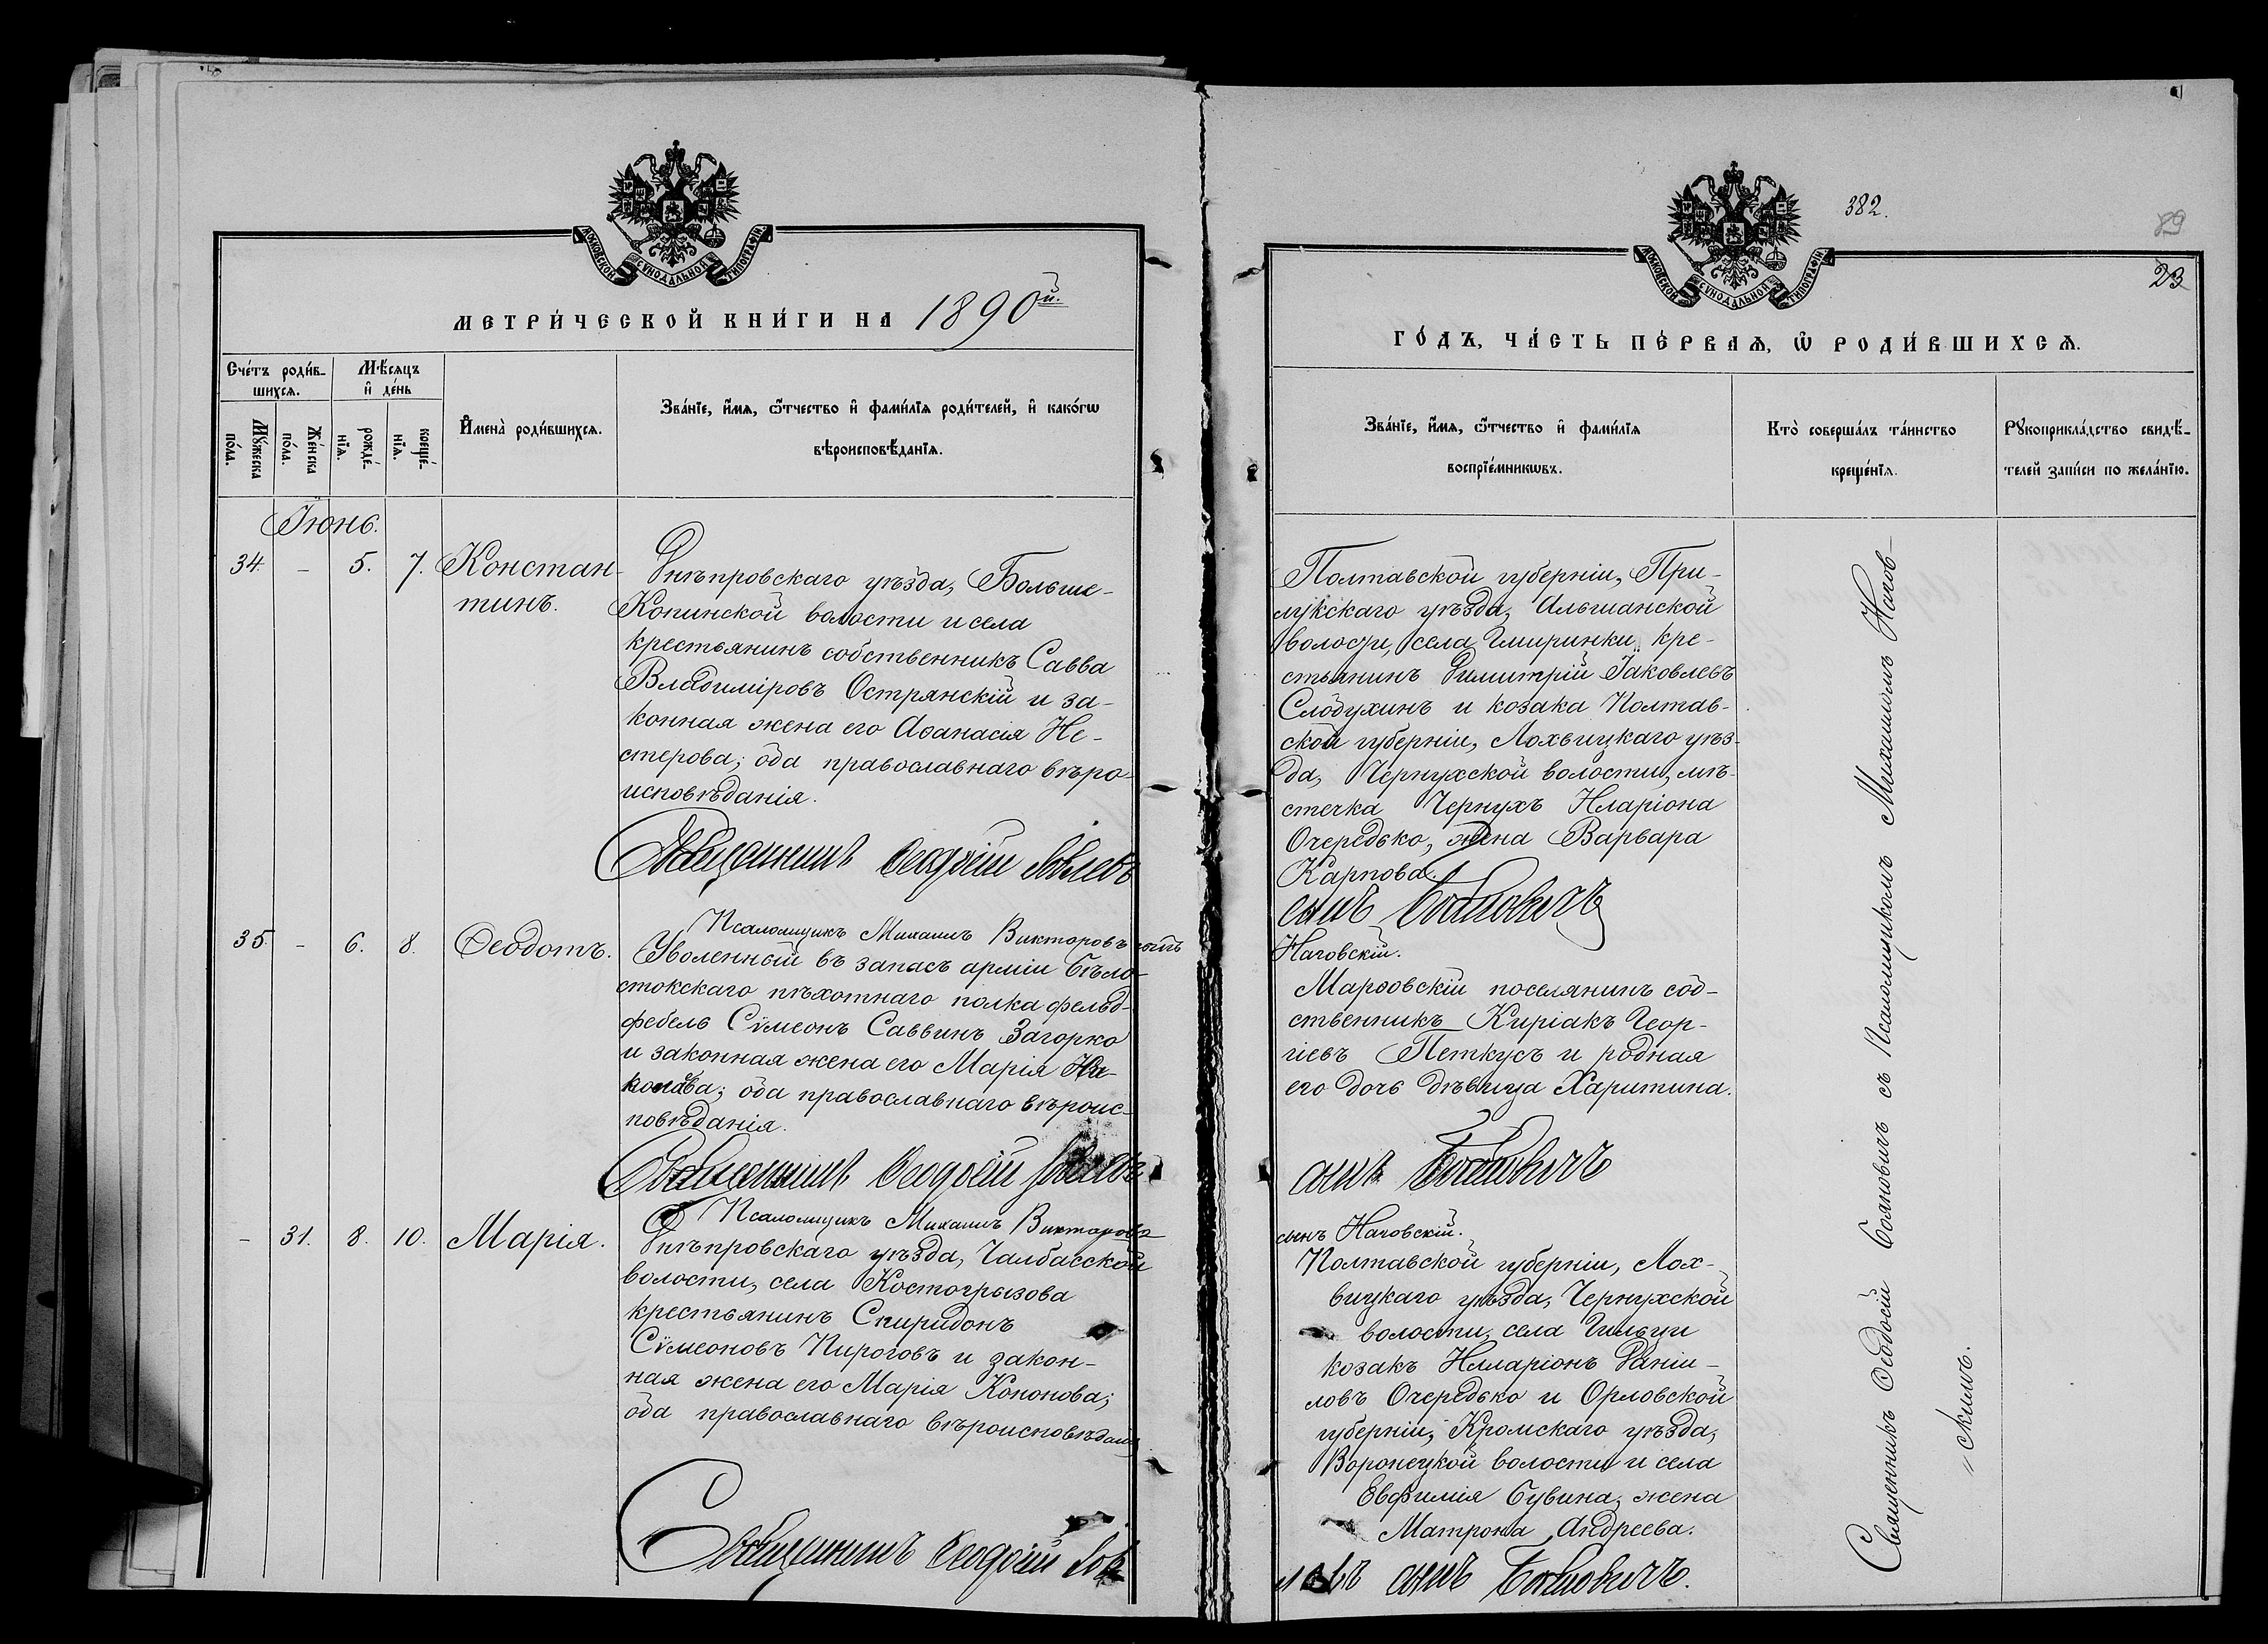 МОСКОВСКОЙ СѴНОДАЛЬНОЙ ТИПОГРАФІИ
МЕТРИ́ЧЕСКОЙ КНИ́ГИ НА 1890й.
Сче́тъ роди́в-
шихсѧ.
Мѣ́сѧцъ
и҆ де́нь
Мꙋ́жеска
по́ла.
Же́нска
по́ла.
рожде́-
нїѧ.
креще́-
нїѧ.
И҆мена̀ роди́вшихсѧ.
Зва́нїе, и҆́мѧ, ѻ҆́тчество и҆ фами́лїѧ роди́телей, и҆ како́гѡ
вѣроисповѣ́данїѧ.
Іюнь.
34. - 5. 7. Констан-
тинъ.
Днѣпровскаго уѣзда, Больше-
Копинской волости и села
крестьянинъ собственникъ Савва
Владиміровъ Острянскій и за-
конная жена его Аѳанасія Не-
стерова; оба православнаго вѣро-
исповѣданія.
Священникъ Ѳеодосій
35. - 6. 8. Ѳеодотъ.
Псаломщикъ Михаилъ Викторовъ сынъ
Уволенный въ запасъ арміи Бѣло-
стокскаго пѣхотнаго полка фельд-
фебель Сѵмеонъ Саввинъ Загорко
и законная жена его Марія
оба православнаго вѣроис-
повѣданія.
Священникъ Ѳеодосій
Псаломщикъ Михаилъ Викторовъ
- 31. 8. 10. Марія.
Днѣпровскаго уѣзда, Чалбасской
волости, села Костогрызова
крестьянинъ Спиридонъ
Сѵмеоновъ Пироговъ и закон-
ная жена его Марія Кононова;
оба православнаго вѣроисповѣданія
Священникъ Ѳеодосій
382.
89
23
МОСКОВСКОЙ СѴНОДАЛЬНОЙ ТИПОГРАФІИ
ГО́ДЪ, ЧА́СТЬ ПЕ́РВАѦ, Ѡ҆ РОДИ́ВШИХСѦ.
Зва́нїе, и҆́мѧ, ѻ҆́тчество и҆ фами́лїѧ
воспрїе́мникѡвъ.
Кто̀ соверша́лъ та́инство
креще́нїѧ.
Рꙋкоприкла́дство свидѣ́-
телей за́писи по жела́нїю.
Полтавской губерніи, При-
лукскаго уѣзда, Альшанской
волости, села Гмиринки, кре-
стьянинъ Димитрій Іаковлевъ
Слобухинъ и козака Полтав-
ской губерніи, Лохвицкаго уѣз-
да, Чернухской волости, мѣ-
стечка Чернухъ Иларіона
Очередько, жена Варвара
Карпова.
сынъ Бояновичъ
Наговскій.
Марѳовскій поселянинъ соб-
ственникъ Киріакъ Геор-
гіевъ Петкусъ и родная
его дочь дѣвица Харитина.
сынъ Бояновичъ
сынъ Наговскій.
Полтавской губерніи, Лох-
вицкаго уѣзда, Чернухской
волости, села Гильцы
козакъ Илларіонъ Даніи-
ловъ Очередько и Орловской
губерніи, Кромскаго уѣзда,
Воронецкой волости и села
Евфимія Бувина, жена
Матрона Андреева.
сынъ Бояновичъ.
Священникъ Ѳеодосій Бояновичъ съ Псаломщикомъ Михаиломъ Нагов-
скимъ.